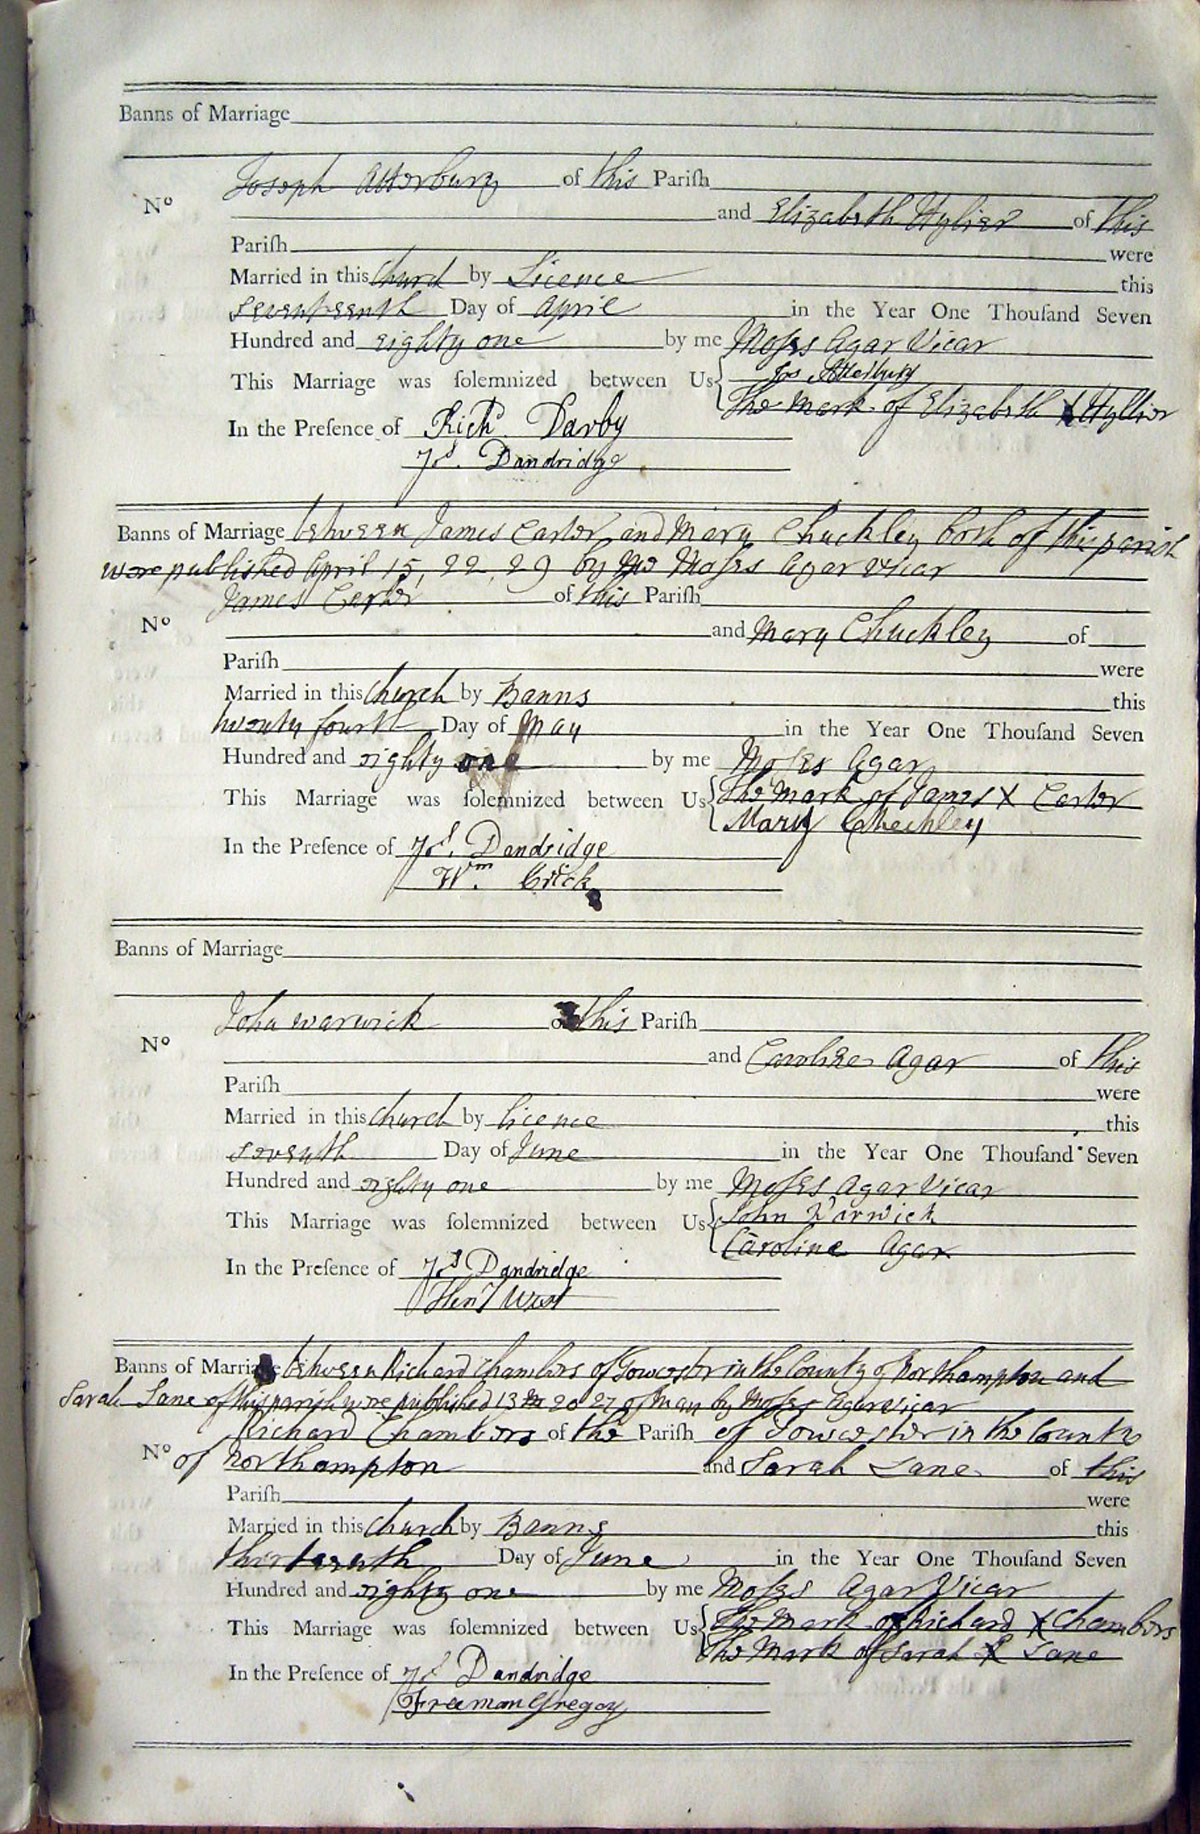 Banns of Marriage
Joseph Atterbury of this Parish
No
and Elizabeth Hylier of this
Parish were
Married in this Church by Licence this
seventeenth Day of April in the Year One Thouſand Seven
Hundred and eighty one by me Moſes Agar Vicar
This Marriage was ſolemnized between Us Jos Atterbury
The Mark of Elizabeth X Hyllier
In the Preſence of Richd Darby
Jos. Dandridge
Banns of Marriage between James Carter and Mary Chuckley both of this parish
were published April 15, 22, 29 by me Moſes Agar Vicar
James Carter of this Parish
No
and Mary Chuckley of
Pariſh were
Married in this Church by Banns this
twenty fourth Day of May in the Year One Thouſand Seven
Hundred and eighty one by me Moſes Agar
This Marriage was ſolemnized between Us The Mark of James X Carter
Mary Checkley
In the Preſence of Jos. Dandridge
Wm. Crick
Banns of Marriage
John Warwick of this Pariſh
No
and Caroline Agar of this
Pariſh were
Married in this Church by licence this
seventh Day of June in the Year One Thouſand Seven
Hundred and eighty one by me Moſes Agar Vicar
This Marriage was ſolemnized between Us John Warwick
Caroline Agar
In the Preſence of Jos Dandridge
Heny West
Banns of Marriage between Richard Chambers of Towcester in the County of Northampton and
Sarah Lane of this parish were published 13 20 27 of May by Moſes Agar Vicar
Richard Chambers of the Pariſh of Towcester in the County
No of Northampton and Sarah Lane of this
Pariſh were
Married in this Church by Banns this
thirteenth Day of June in the Year One Thouſand Seven
Hundred and eighty one by me Moſes Agar Vicar
This Marriage was ſolemnized between Us The Mark of Richard X Chambers
The Mark of Sarah X Lane
In the Preſence of Jos Dandridge
Freeman Gregory